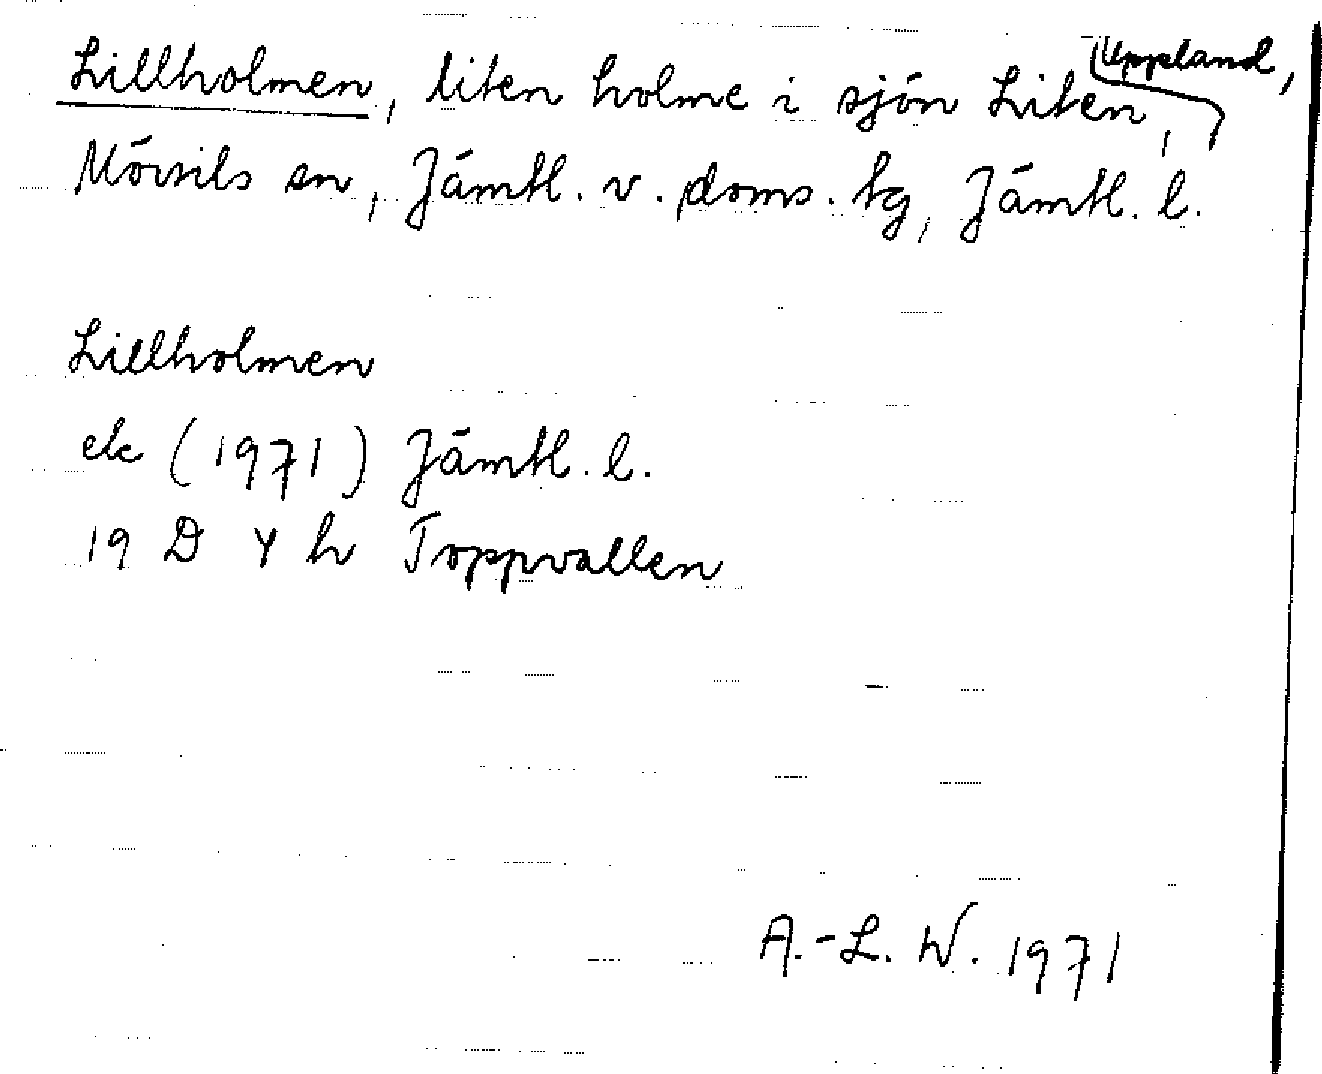 Lillholmen, liten holme i sjön Liten, Uppland,
Mörsils sn, Jämtl. v. doms. tg, Jämtl. l.
Lillholmen
ek (1971) Jämtl. l.
19 D Y h Toppvallen
A.-L. W. 1971